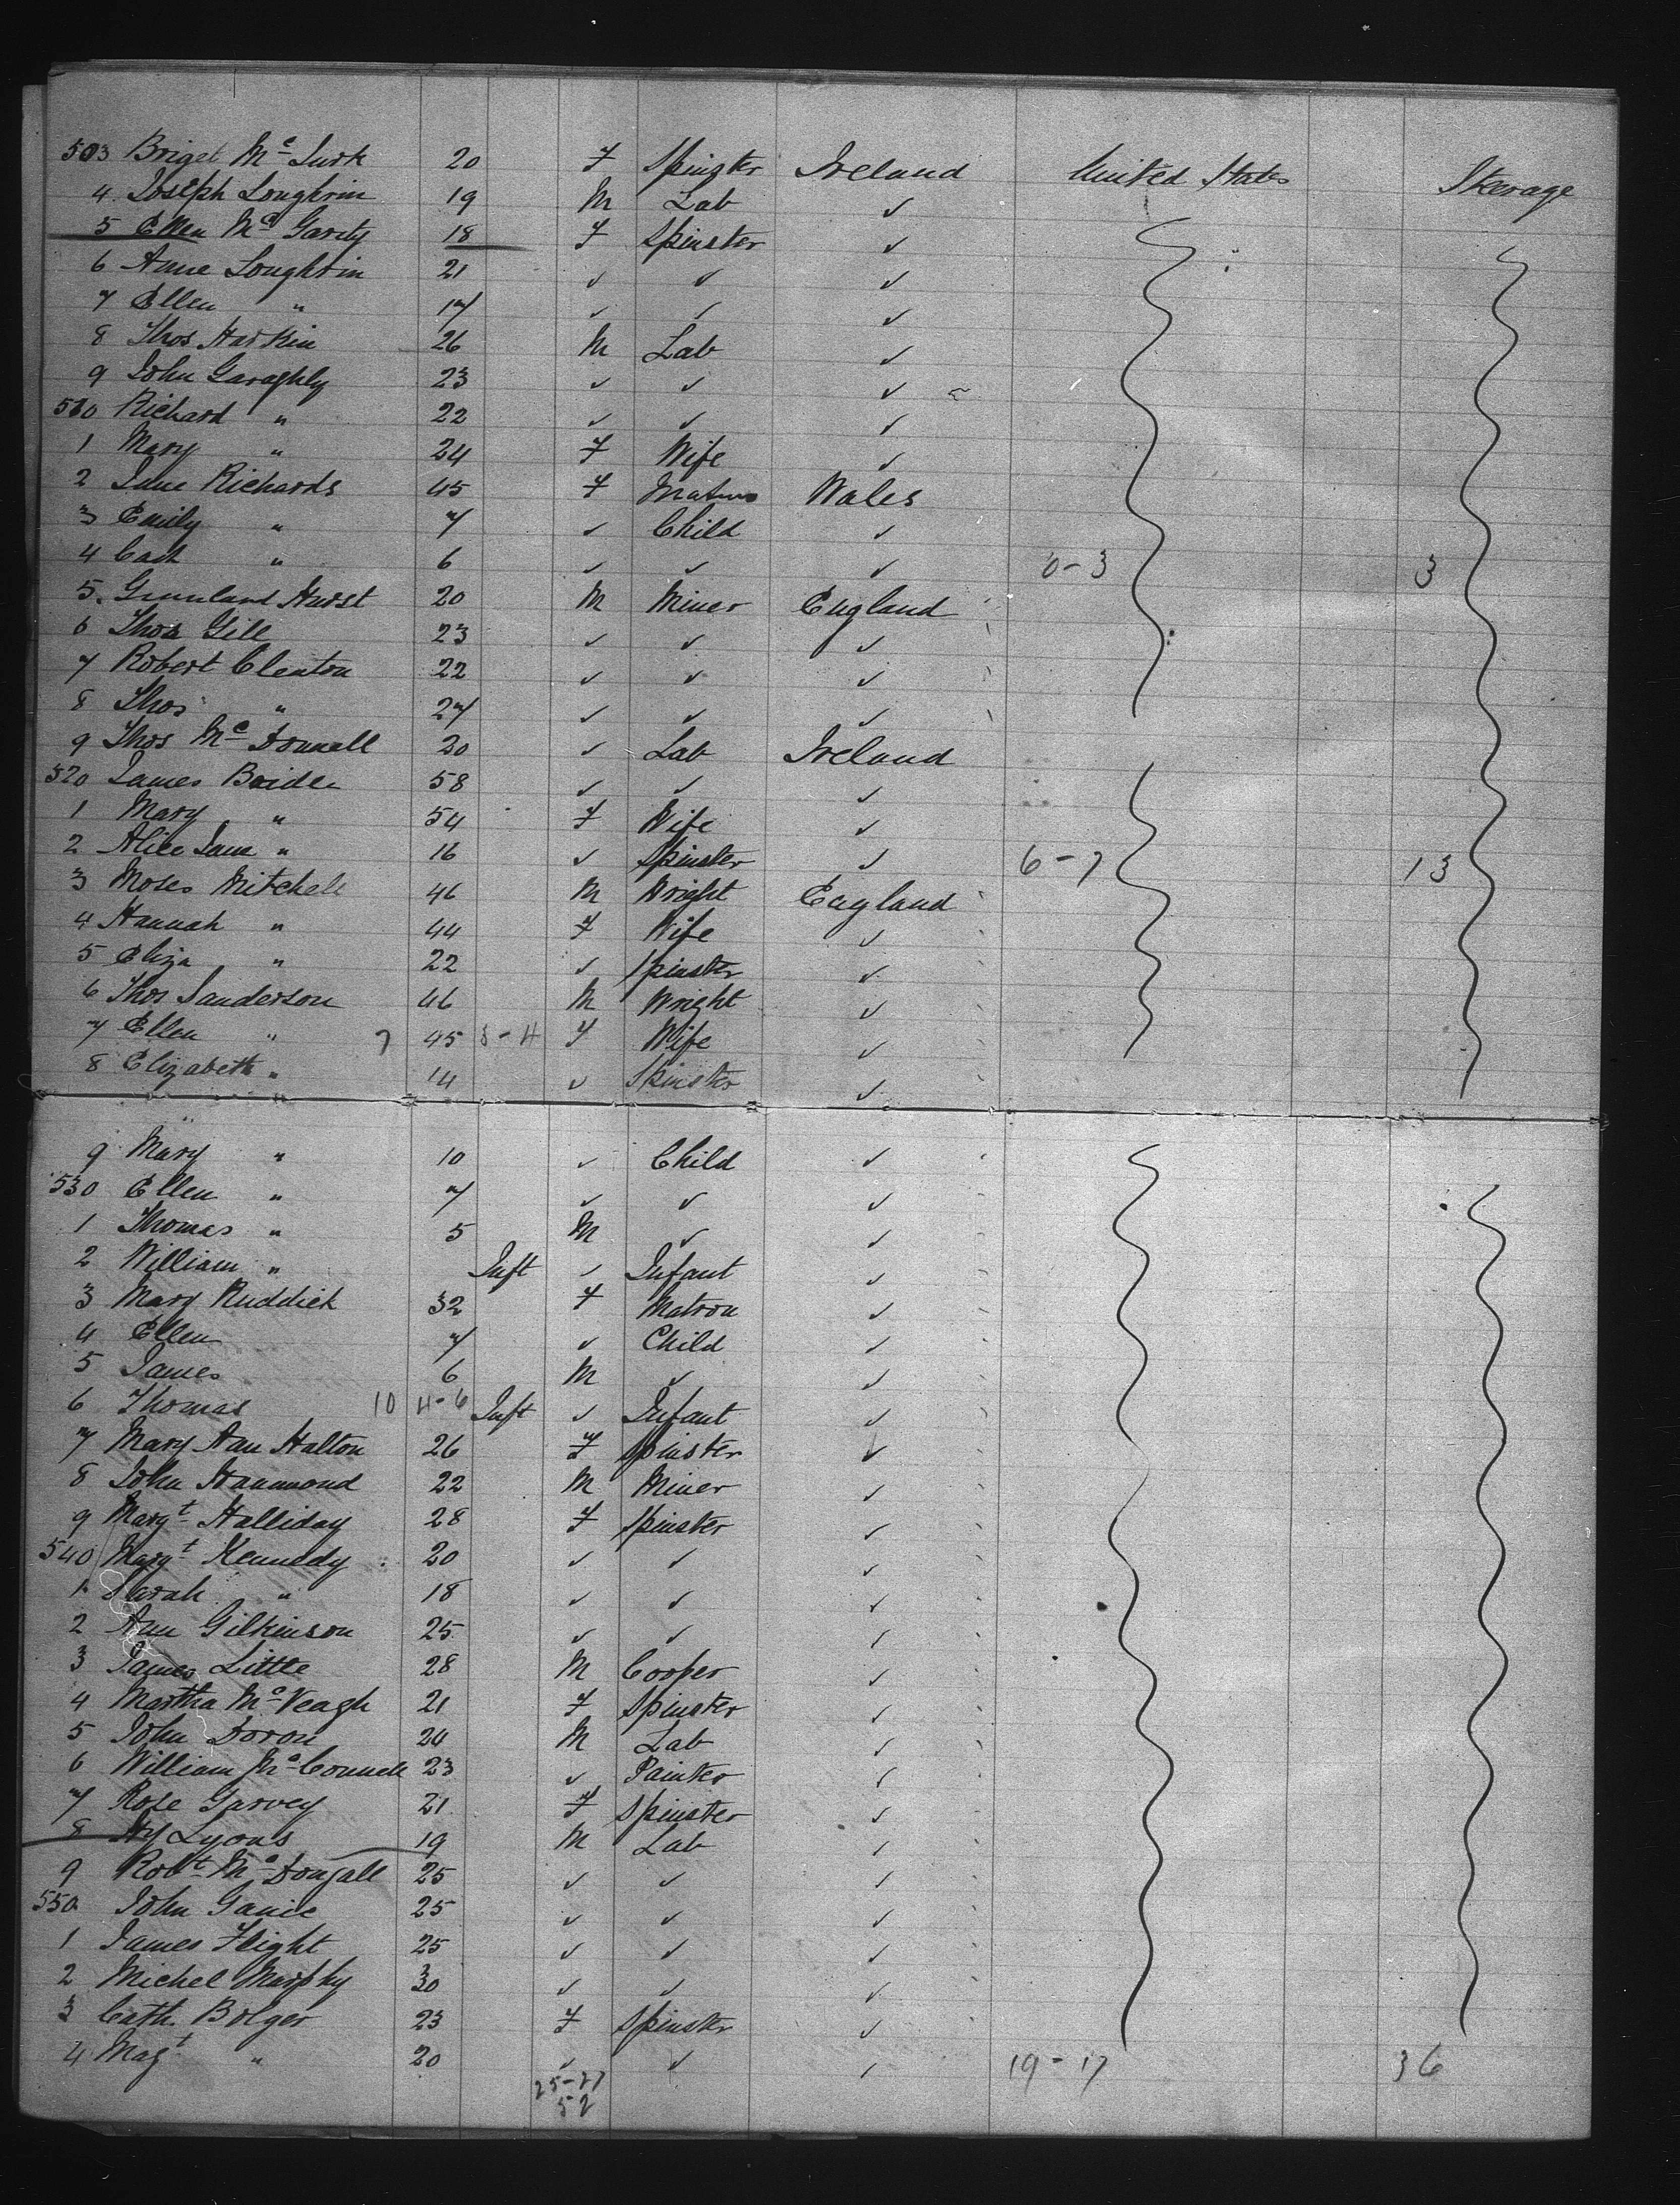 503 Briget Mc Turk 20 F Spinster Ireland United States Steerage
4 Joseph Loughrin 19 M Lab ✓
5 Ellen Mc Garity 18 F Spinster ✓
6 Anne Loughrin 21 ✓ ✓ ✓
7 Ellen " 17 ✓ ✓ ✓
8 Thos Harkin 26 M Lab ✓
9 John Garaghly 23 ✓ ✓ ✓
510 Richard " 22 ✓ ✓ ✓
1 Mary " 24 F Wife ✓
2 Jane Richards 45 F Matron Wales
3 Emily " 7 ✓ Child ✓
4 Cath " 6 ✓ ✓ ✓ 0-3 3
5. Hurst 20 M Miner England
6 Thos Gill 23 ✓ ✓ ✓
7 Robert Clenton 22 ✓ ✓ ✓
8 Thos " 27 ✓ ✓ ✓
9 Thos Mc Donnell 20 ✓ Lab Ireland
520 James 58 ✓ ✓ ✓
1 Mary " 54 F Wife ✓
2 Alice Jane " 16 ✓ Spinster ✓ 6-7 13
3 Moses Mitchell 46 M Wright England
4 Hannah " 44 F Wife ✓
5 Eliza " 22 ✓ Spinster ✓
6 Thos Sanderson 46 M Wright ✓
7 Ellen " 7 45 3-4 F Wife ✓
8 Elizabeth " 14 ✓ Spinster ✓
9 Mary " 10 ✓ Child ✓
530 Ellen " 7 ✓ ✓ ✓
1 Thomas " 5 M ✓ ✓
2 William " Inft ✓ Infant ✓
3 Mary Ruddick 32 F Matron ✓
4 Ellen 7 ✓ Child ✓
5 James 6 M ✓ ✓
6 Thomas 10 4-6 Inft ✓ Infant ✓
7 Mary Ann Halton 26 F Spinster ✓
8 John Hammond 22 M Miner ✓
9 Margt Halliday 28 F Spinster ✓
540 Margt Kennedy 20 ✓ ✓ ✓
1 Sarah " 18 ✓ ✓ ✓
2 Ann Gilkinson 25 ✓ ✓ ✓
3 James Little 28 M Cooper ✓
4 Martha Mc Veagh 21 F Spinster ✓
5 John Doron 24 M Lab ✓
6 William Mc Connell 23 ✓ Painter ✓
7 Rose Garvey 21 F Spinster ✓
8 Hy Lyons 19 M Lab ✓
9 Robt Mc Dougall 25 ✓ ✓ ✓
550 John 25 ✓ ✓ ✓
1 James Flight 25 ✓ ✓ ✓
2 Michel Murphy 30 ✓ ✓ ✓
3 Cath. Bolger 23 F Spinster ✓
4 Magt " 20 ✓ ✓ ✓ 19-17 36
25-27
52